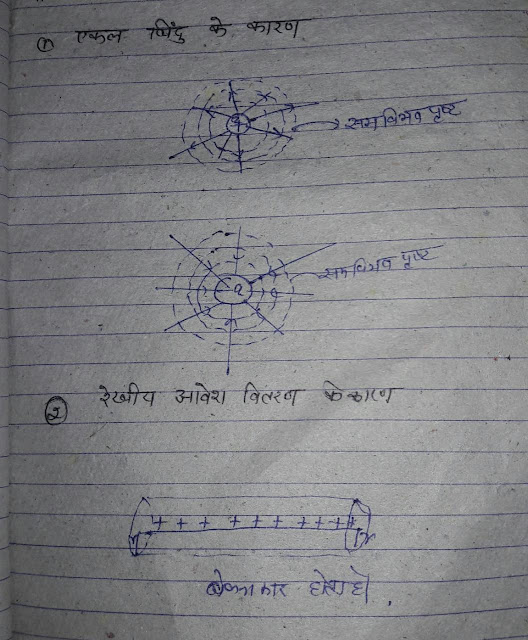 (1) एकल बिंदु के कारण
q
समविभव पृष्ट
q
समविभव पृष्ट
(2) रेखीय आवेश वितरण के कारण
+ + + + + + + + + + +
होता है.